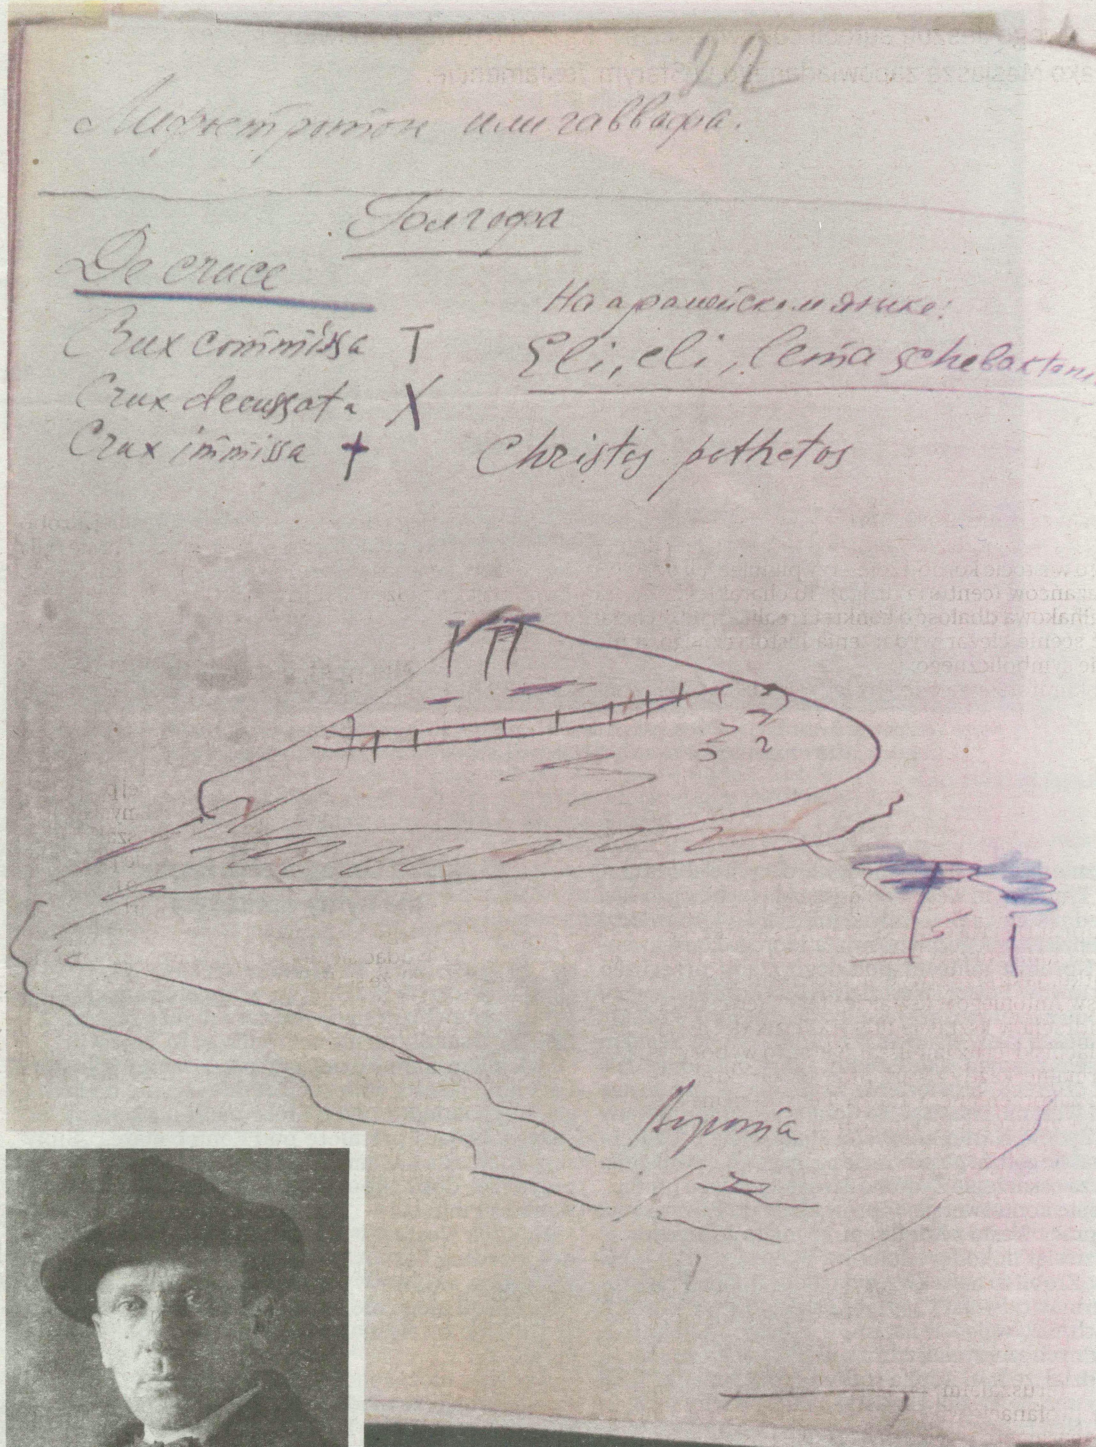 22
Лифостротон или гаввафа.
Голгофа
De cruce
Crux commissa T
Crux decussata X
Crux immissa †
На арамейском языке:
Eli, eli, lema schebaktani
Christus pathetos